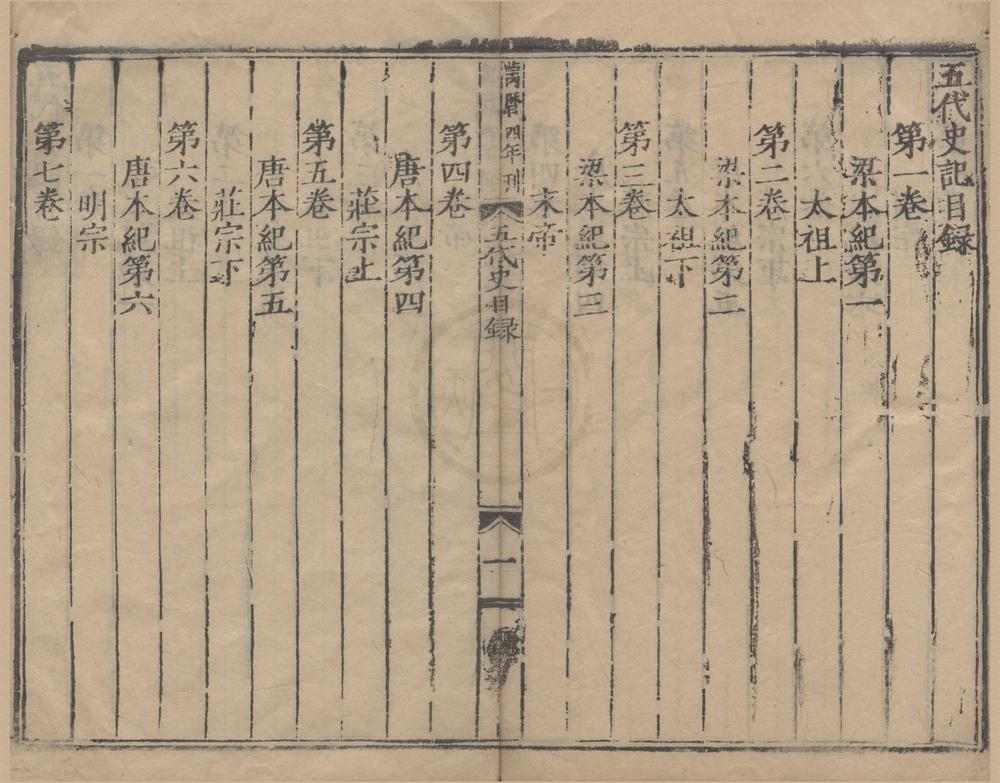 五代史記目録
第一卷
梁本紀第一
太祖上
第二卷
梁本紀第二
太祖下
第三卷
梁本紀第三
末帝
萬曆四年刊
五代史目録
一
第四卷
唐本紀第四
莊宗上
第五卷
唐本紀第五
莊宗下
第六卷
唐本紀第六
明宗
第七卷